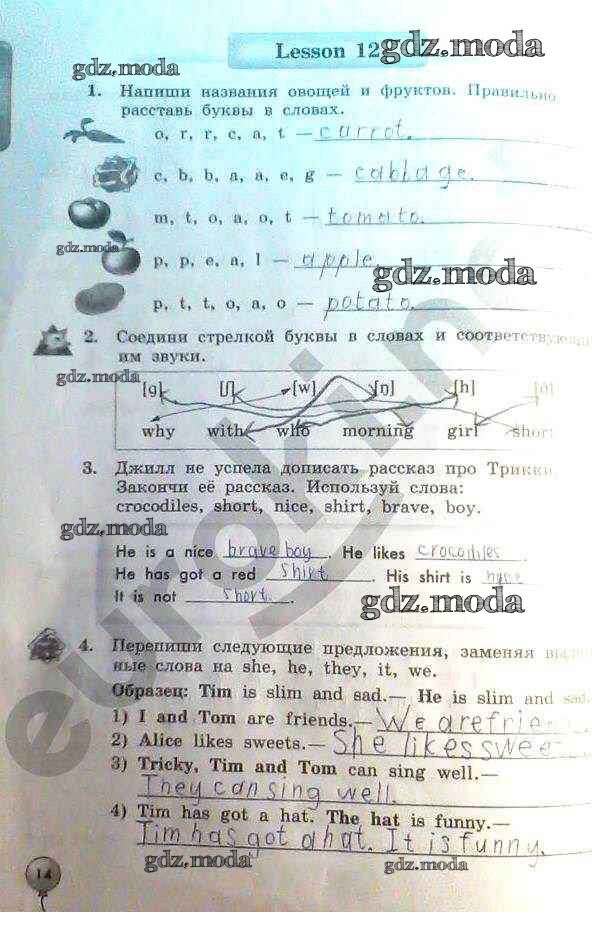 Lesson 12
gdz.moda
gdz.moda
1. Напиши названия овощей и фруктов. Правильно
расставь буквы в словах.
o, r, r, c, a, t — carrot.
c, b, b, a, a, e, g — cabbage.
m, t, o, a, o, t — tomato.
gdz.moda
p, p, e, a, l — apple.
gdz.moda
p, t, t, o, a, o — potato.
2. Соедини стрелкой буквы в словах и соответствующи
им звуки.
gdz.moda
[g] [ʃ] [w] [ŋ] [h] [ð]
why with who morning girl short
3. Джилл не успела дописать рассказ про Трикки.
Закончи её рассказ. Используй слова:
crocodiles, short, nice, shirt, brave, boy.
gdz.moda
He is a nice brave boy. He likes crocodiles
He has got a red shirt. His shirt is
It is not short.
gdz.moda
euroki.me
4. Перепиши следующие предложения, заменяя выде
ные слова на she, he, they, it, we.
Образец: Tim is slim and sad.— He is slim and sad.
1) I and Tom are friends.— We are frien
2) Alice likes sweets.— She likes swee
3) Tricky, Tim and Tom can sing well.—
They can sing well.
4) Tim has got a hat. The hat is funny.—
Tim has got a hat. It is funny.
gdz.moda
gdz.moda
14